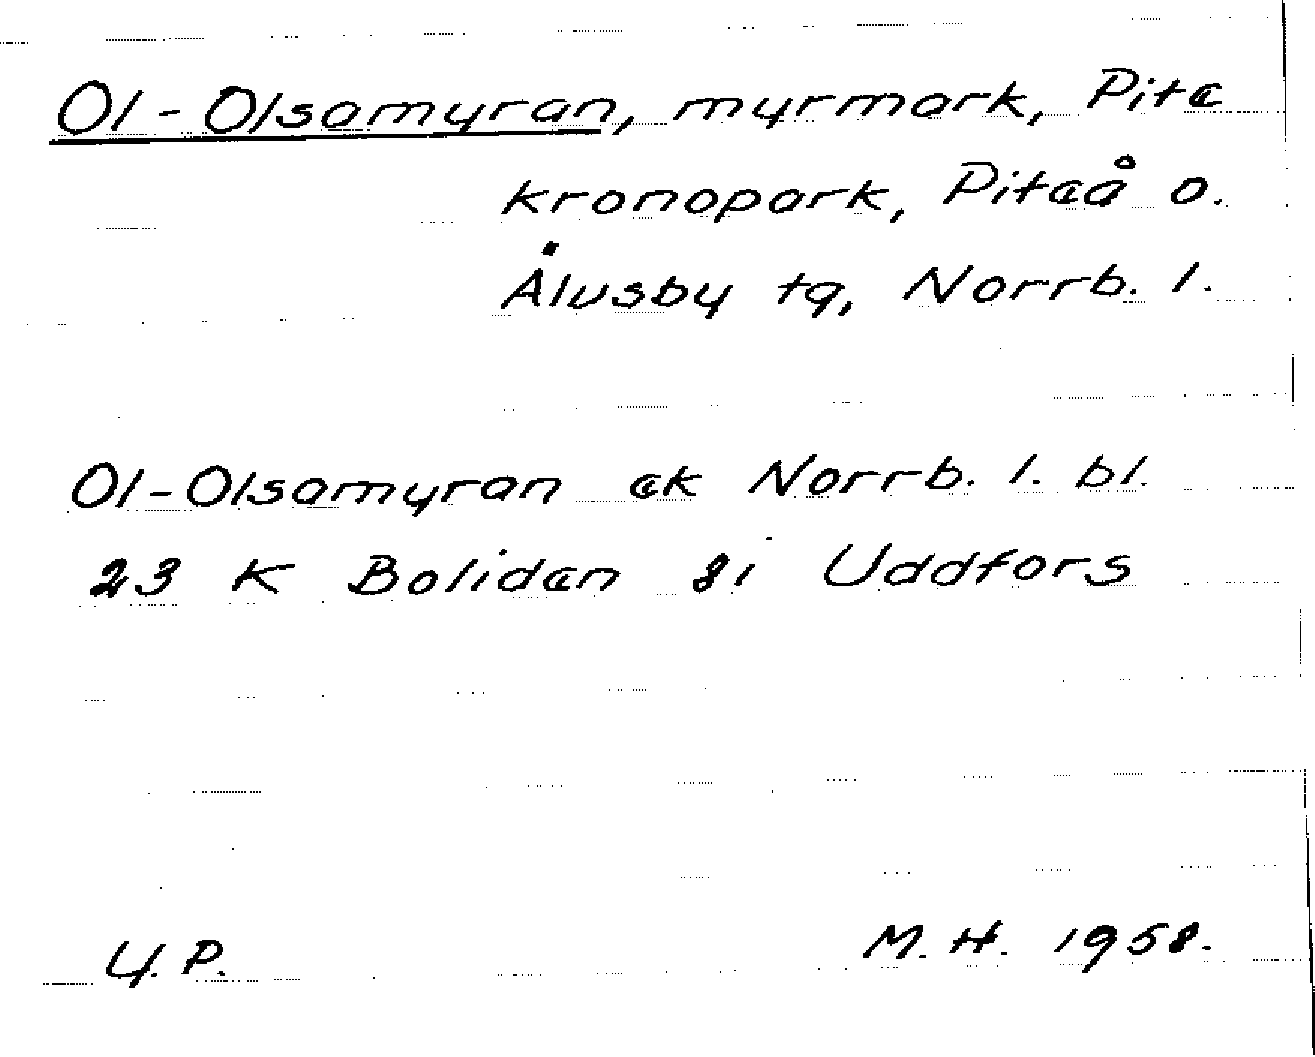 Ol-Olsamyran, myrmark, Pite
kronopark, Piteå o.
Älvsby tg, Norrb. l.
Ol-Olsamyran ek Norrb. l. bl.
23 K Boliden 8i Uddfors
U.P. M.H. 1958.